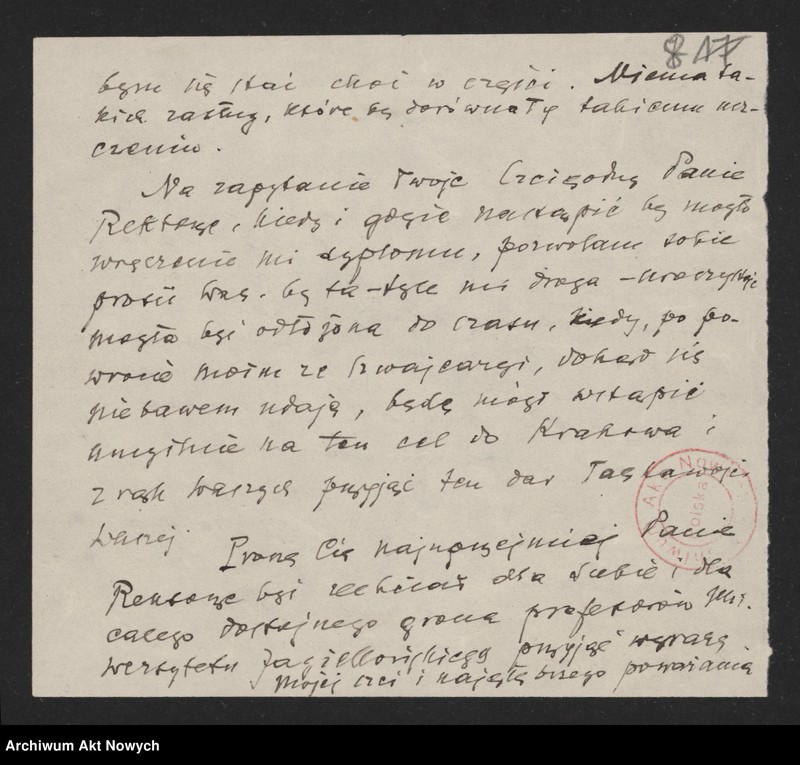 8 17
bym się stać choć w części. Niema ta-
kich zasług, które by dorównały takiemu ucz-
czeniu.
Na zapytanie Twoje Czcigodny Panie
Rektorze, kiedy i gdzie nastąpić by mogło
wręczenie mi dyplomu, pozwolam sobie
prosić Was, by ta – tyle mi droga – uroczystość
mogła być odłożona do czasu, kiedy, po po-
wrocie moim ze Szwajcaryi, dokąd się
niebawem udaję, będę mógł wstąpić
umyślnie na ten cel do Krakowa i
z rąk Waszych przyjąć ten dar łaskawości
Waszej.
Proszę Cię najuprzejmiej Panie
Rektorze byś zechciał dla Siebie i dla
całego dostojnego grona profesorów Uni-
wersytetu Jagiellońskiego przyjąć wyrazy
mojej czci i najgłębszego poważania
Archiwum Akt Nowych